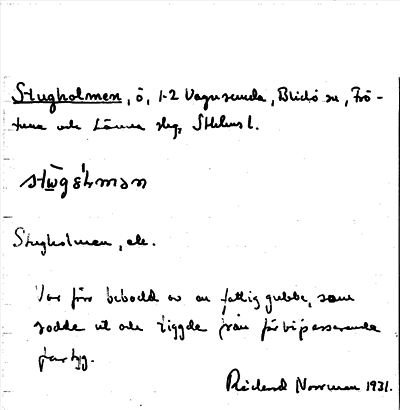 Stugholmen, ö, 1-2 Vagnsunda, Blidö sn, Frö-
tuna och Länna slg, Sthlms l.
stu̇gǝ̀hman
Stugholmen, ele.
Var förr bebodd av en fattig gubbe, som
rodde ut och tiggde från förbipasserande
fartyg.
Rickard Norrman 1931.